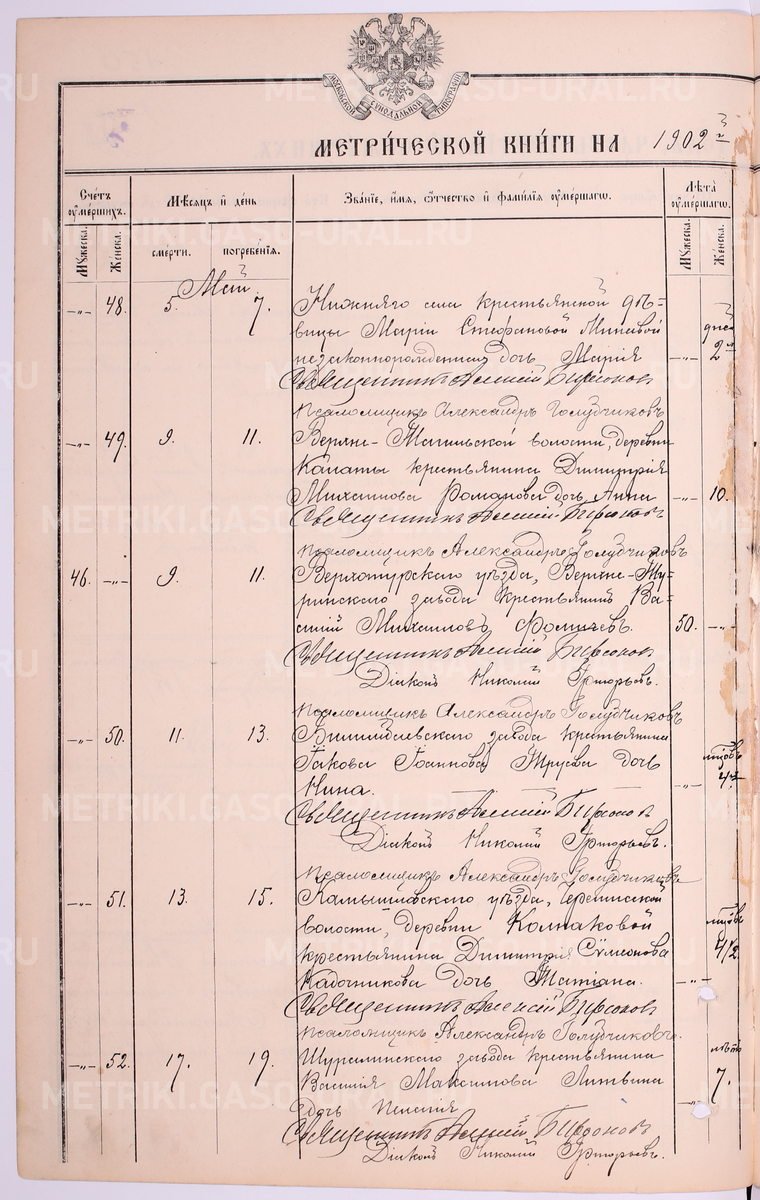 МОСКОВСКОЙ СѴНОДАЛЬНОЙ ТИПОГРАФІИ
МЕТРИ́ЧЕСКОЙ КНИ́ГИ НА 1902 г.
Сче́тъ оу҆ме́ршихъ.
Мѣ́сяцъ и҆ де́нь
Зва́ніе, и҆́мя, ѻ҆́тчество и҆ фами́лія оу҆ме́ршагѡ.
Лѣ́та оу҆ме́ршагѡ.
Мꙋ́жеска.
Же́нска.
сме́рти.
погребе́нія.
Мꙋ́жеска.
Же́нска.
Май
-„- 48. 5. 7. Нижняго села крестьянской дѣ-
вицы Маріи Стефановой Минѣевой
дней
незаконнорожденная дочь Марія -„- 2
Священникъ Алексій Бирюковъ
Псаломщикъ Александръ Голубчиковъ
-„- 49. 9. 11. Верхне-Тагильской волости, деревни
Калаты крестьянина Димитрія
Михаилова Романова дочь Анна -„- 10.
Священникъ Алексій Бирюковъ
Псаломщикъ Александръ Голубчиковъ
46. -„- 9. 11. Верхотурскаго уѣзда, Верхне-Ту-
ринскаго завода крестьянинъ Ва-
силій Михаиловъ Фомичевъ. 50. -„-
Священникъ Алексій Бирюковъ
Діаконъ Николай Григорьевъ.
Псаломщикъ Александръ Голубчиковъ
-„- 50. 11. 13. завода крестьянина
Іакова Іоаннова дочь
Нина. -„-
Священникъ Алексій Бирюковъ
Діаконъ Николай Григорьевъ.
Псаломщикъ Александръ Голубчиковъ
-„- 51. 13. 15. Камышловскаго уѣзда,
волости, деревни Колмаковой
крестьянина Димитрія Сѵмеонова
Кадочникова дочь Татіана. -„-
Священникъ Алексій Бирюковъ
Псаломщикъ Александръ Голубчиковъ.
-„- 52. 17. 19. Шуралинскаго завода крестьянина
лѣтъ
Василія Максимова Литвина 7.
дочь -„-
Священникъ Алексій Бирюковъ
Діаконъ Николай Григорьевъ.
METRIKI.GASO-URAL.RU